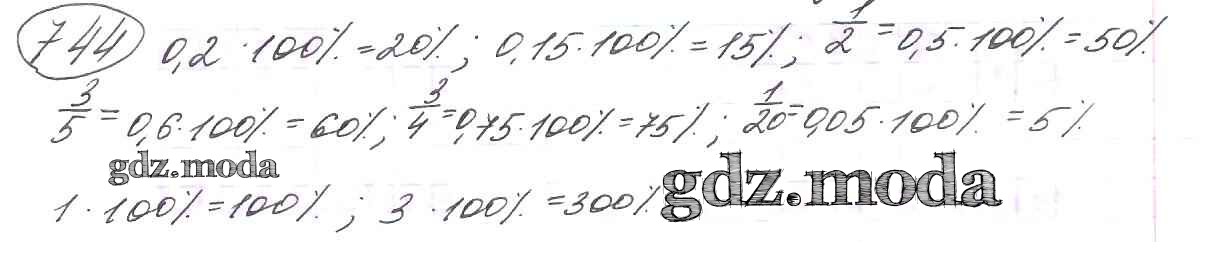 744 0,2 · 100% = 20%; 0,15 · 100% = 15%; 1/2 = 0,5 · 100% = 50%
3/5 = 0,6 · 100% = 60%; 3/4 = 0,75 · 100% = 75%; 1/20 = 0,05 · 100% = 5%
gdz.moda gdz.moda
1 · 100% = 100%; 3 · 100% = 300%